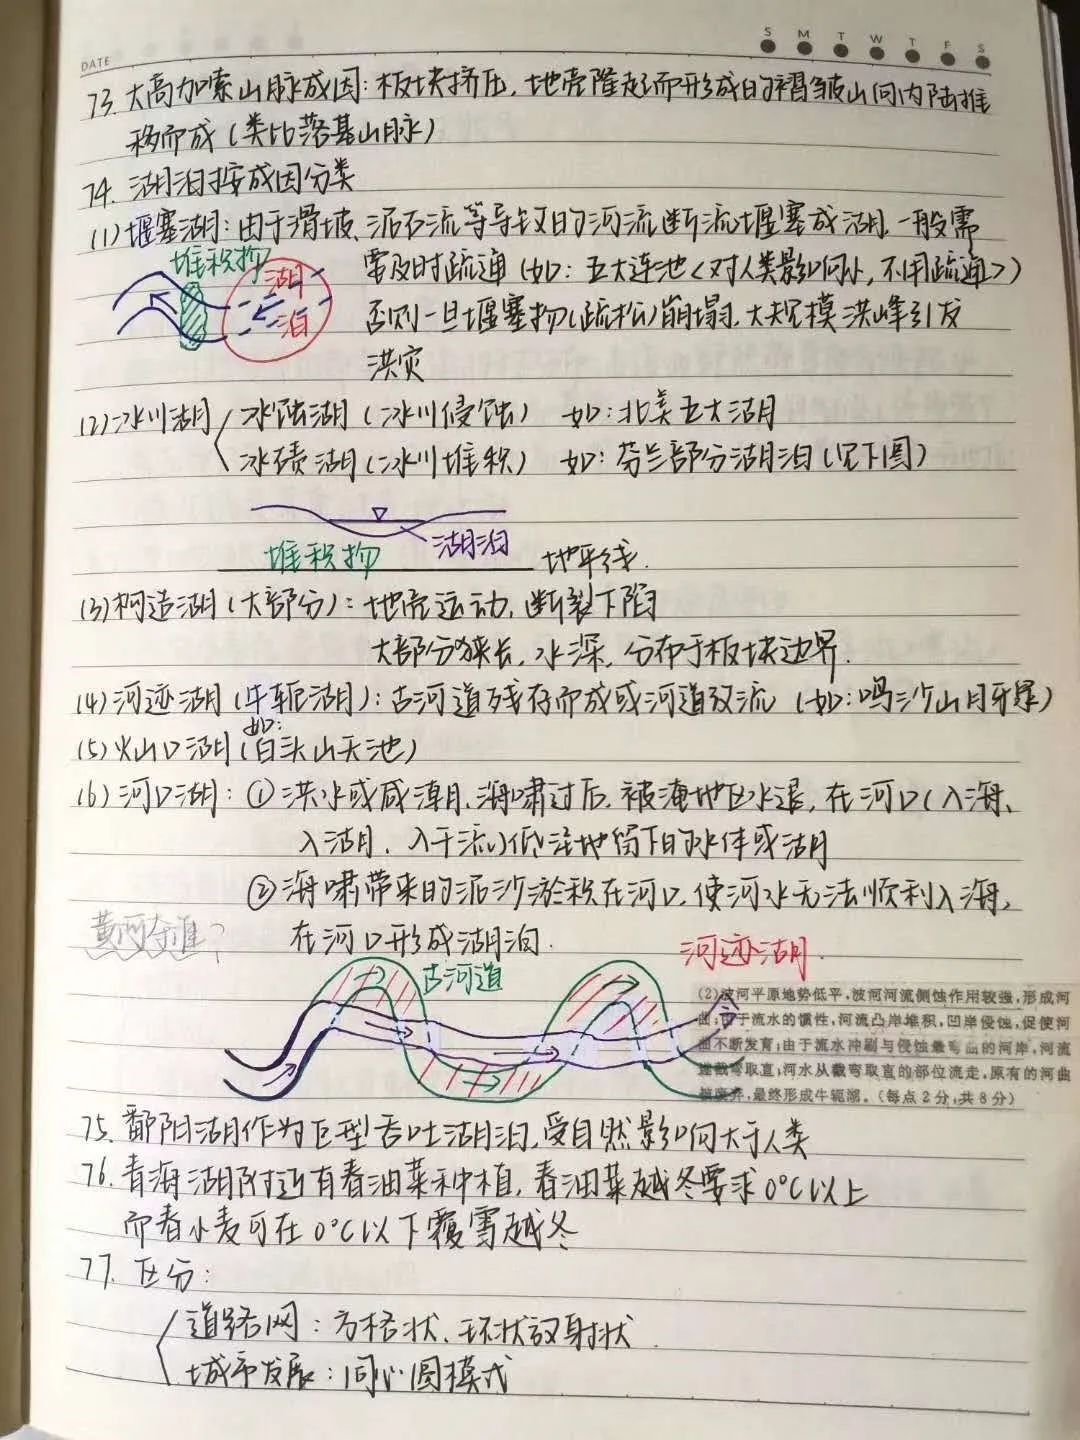 DATE
S M T W T F S
73. 大高加索山脉成因：板块挤压，地壳隆起而形成的褶皱山向内陆推
移而成（类比落基山脉）
74. 湖泊按成因分类
(1)堰塞湖：由于滑坡、泥石流等导致的河流断流堰塞成湖，一般需
堆积物
湖泊
需及时疏通（如：五大连池<对人类影响小，不用疏通>）
否则一旦堰塞物(疏松)崩塌，大规模洪峰引发
洪灾
(2)冰川湖
冰蚀湖（冰川侵蚀） 如：北美五大湖
冰碛湖（冰川堆积） 如：芬兰部分湖泊（见下图）
堆积物
湖泊
地平线
(3)构造湖（大部分）：地壳运动，断裂下陷
大部分狭长，水深，分布于板块边界.
(4)河迹湖（牛轭湖）：古河道残存而成或河道改流（如：鸣沙山月牙泉）
(5)火山口湖（如：白头山天池）
(6)河口湖：①洪水或咸潮、海啸过后，被淹地区水退，在河口（入海、
入湖、入干流）低洼地留下的水体或湖
②海啸带来的泥沙淤积在河口，使河水无法顺利入海，
黄河夺淮？
在河口形成湖泊.
古河道
河迹湖.
(2)波河平原地势低平，波河河流侧蚀作用较强，形成河
曲；由于流水的惯性，河流凸岸堆积，凹岸侵蚀，促使河
曲不断发育；由于流水冲刷与侵蚀最弯曲的河岸，河流
截弯取直；河水从截弯取直的部位流走，原有的河曲
废弃，最终形成牛轭湖。（每点2分，共8分）
75. 鄱阳湖作为巨型吞吐湖泊，受自然影响大于人类
76. 青海湖附近有春油菜种植，春油菜越冬要求0℃以上
而春小麦可在0℃以下覆雪越冬
77. 区分：
道路网：方格状、环状放射状
城市发展：同心圆模式